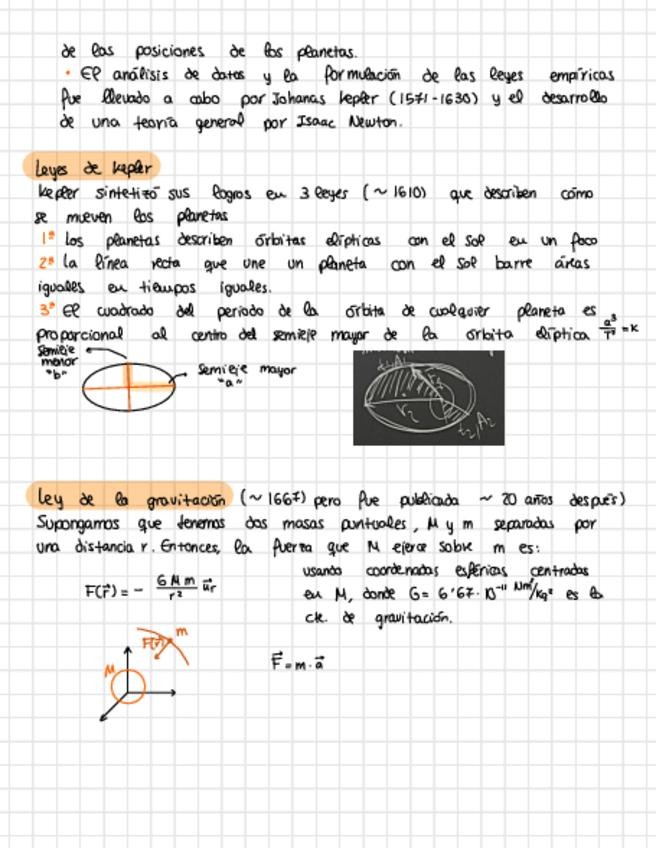 de las posiciones de los planetas.
• El análisis de datos y la formulación de las leyes empíricas
fue llevado a cabo por Johanas Kepler (1571-1630) y el desarrollo
de una teoría general por Isaac Newton.
Leyes de Kepler
Kepler sintetizó sus logros en 3 leyes (~ 1610) que describen cómo
se mueven los planetas
1ª Los planetas describen órbitas elípticas con el sol en un foco
2ª La línea recta que une un planeta con el sol barre áreas
iguales en tiempos iguales.
3ª El cuadrado del periodo de la órbita de cualquier planeta es
proporcional al centro del semieje mayor de la órbita elíptica a³/T² = K
semieje
menor
"b"
semieje mayor
"a"
r₂
t₂, A₂
Ley de la gravitación (~ 1667) pero fue publicada ~ 20 años después)
Supongamos que tenemos dos masas puntuales, M y m separadas por
una distancia r. Entonces, la fuerza que M ejerce sobre m es:
F(r⃗) = - GMm/r² u⃗r
usando coordenadas esféricas centradas
en M, donde G = 6'67·10⁻¹¹ Nm²/kg² es la
cte. de gravitación.
m
F(r⃗)
M
F⃗ = m·a⃗